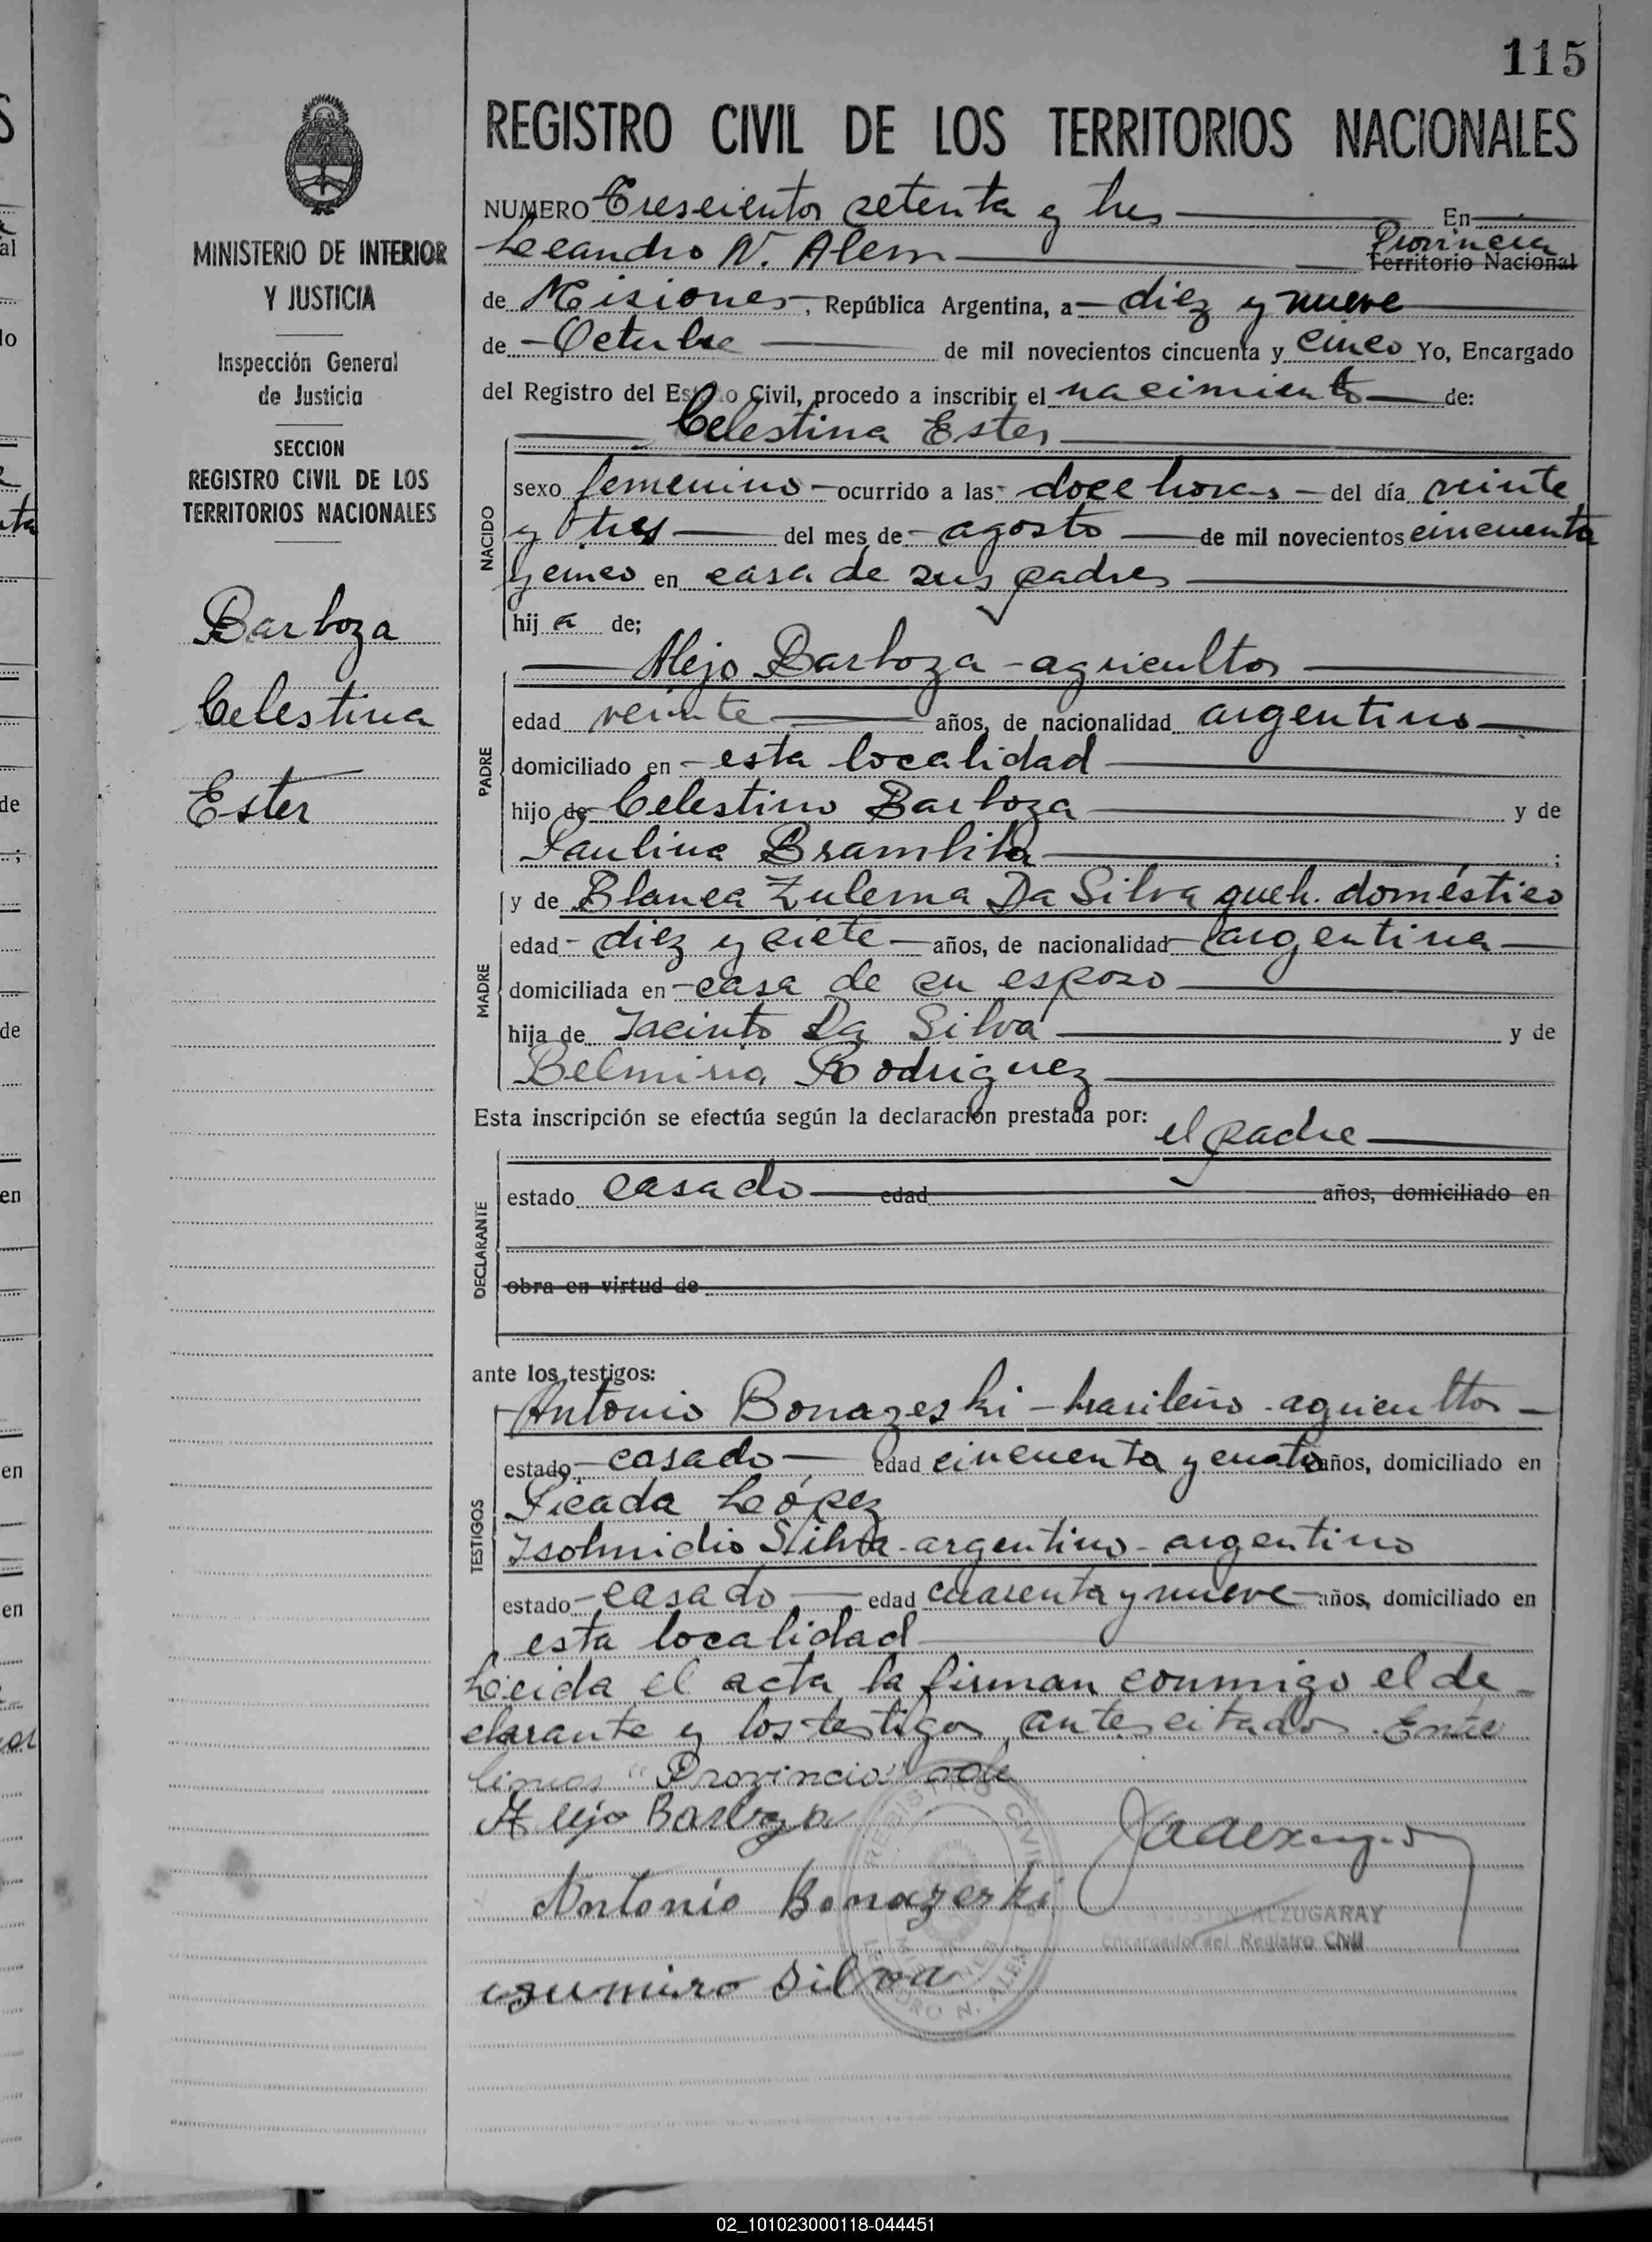 115
REGISTRO CIVIL DE LOS TERRITORIOS NACIONALES
MINISTERIO DE INTERIOR
Y JUSTICIA
Inspección General
de Justicia
SECCION
REGISTRO CIVIL DE LOS
TERRITORIOS NACIONALES
Barboza
Celestina
Ester
NUMERO Trescientos setenta y tres En
Leandro N. Alem Provincia
Territorio Nacional
de Misiones, República Argentina, a diez y nueve
de Octubre de mil novecientos cincuenta y cinco Yo, Encargado
del Registro del Estado Civil, procedo a inscribir el nacimiento de:
Celestina Ester
NACIDO
sexo femenino ocurrido a las doce horas del día veinte
y tres del mes de agosto de mil novecientos cincuenta
y cinco en casa de sus padres
hij a de;
PADRE
Alejo Barboza - agricultor
edad veinte años, de nacionalidad argentino
domiciliado en esta localidad
hijo de Celestino Barboza y de
Paulina Brambila ;
MADRE
y de Blanca Zulema Da Silva queh. doméstico
edad diez y siete años, de nacionalidad argentina
domiciliada en casa de su esposo
hija de Jacinto Da Silva y de
Belmira Rodriguez
Esta inscripción se efectúa según la declaración prestada por: el padre
DECLARANTE
estado casado edad años, domiciliado en
obra en virtud de
ante los testigos:
TESTIGOS
Antonio Bonazeski - brasileño - agricultor
estado casado edad cincuenta y cuatro años, domiciliado en
Picada López
Silva - argentino - argentino
estado casado edad cuarenta y nueve años, domiciliado en
esta localidad
Leida el acta la firman conmigo el de-
clarante y los testigos antes citados. Entre
lineas "Provincia" vale
Alejo Barboza
Antonio Bonazerki
REGISTRO CIVIL
MISIONES
LEANDRO N. ALEM
AGUSTIN ALZUGARAY
Encargado del Registro Civil
Silva
al
lo
ta
de
de
en
en
en
02_101023000118-044451